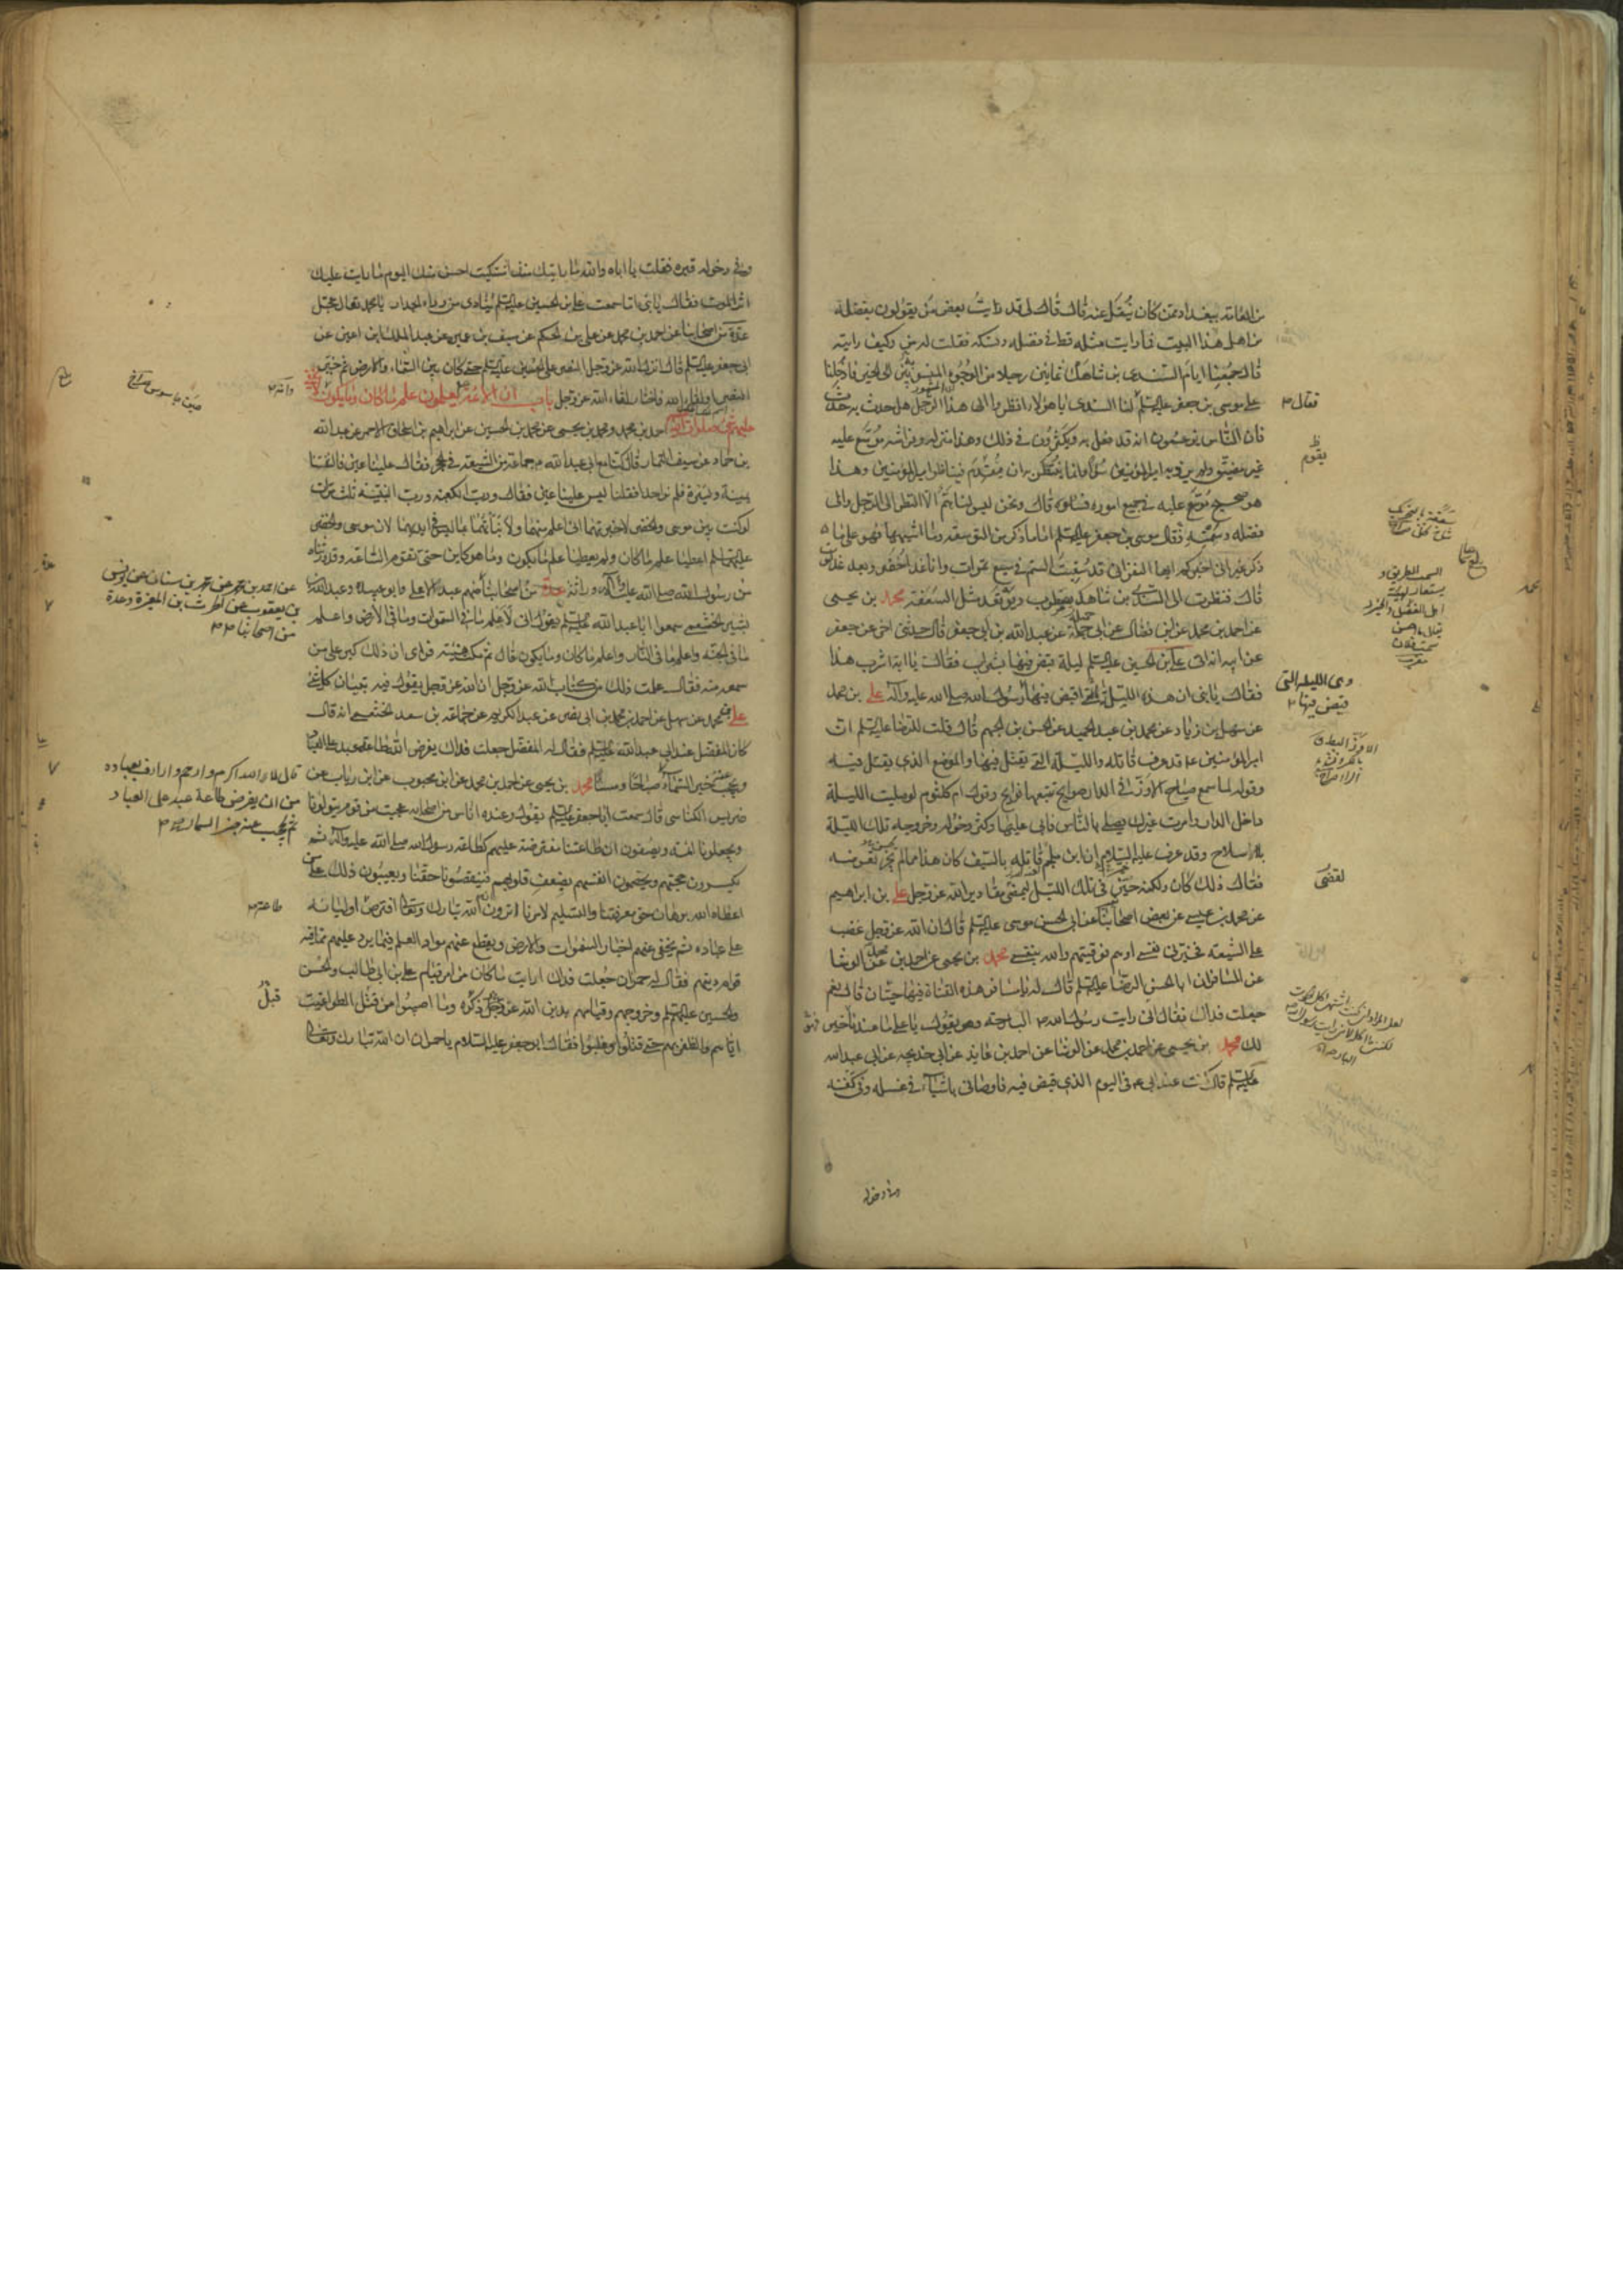 من العامة ببغداد ممن كان ينقل عنه قال قال لي قد رايت بعض من يقولون بفضله
من اهل هذا البيت فما رايت مثله قط في فضله ونسكه فقلت له من وكيف رايته
قال جمعنا ايام السندي بن شاهك ثمانين رجلا من الوجوه المنسوبين الى الخير فادخلنا
على موسى بن جعفر عليه السلم فقال لنا السندي يا هؤلاء انظروا الى هذا الرجل هل حدث به حدث
فان الناس يزعمون انه قد فعل به ويكثرون في ذلك وهذا منزله وفراشه موسع عليه
غير مضيق ولم يرد به امير المؤمنين سوءا وانما ينتظر به ان يقدم فيناظر امير المؤمنين وهذا
هو صحيح موسع عليه في جميع اموره فسلوه قال ونحن ليس لنا هم الا النظر الى الرجل والى
فضله وسمته فقال موسى بن جعفر عليه السلم اما ما ذكر من التوسعة وما اشبهها فهو على ما
ذكر غير اني اخبركم ايها النفر اني قد سقيت السم في سبع تمرات وانا غدا اخضر وبعد غد اموت
قال فنظرت الى السندي بن شاهك يضطرب ويرتعد مثل السعفة محمد بن يحيى
عن احمد بن محمد عن ابن فضال عن ابي جميلة عن عبد الله بن ابي جعفر قال حدثني اخي عن جعفر
عن ابيه انه اتى علي بن الحسين عليه السلم ليلة قبض فيها بشراب فقال يا ابة اشرب هذا
فقال يا بني ان هذه الليلة التي اقبض فيها رسول الله صلى الله عليه وآله علي بن محمد
عن سهل بن زياد عن محمد بن عبد الحميد عن الحسن بن الجهم قال قلت للرضا عليه السلم ان
امير المؤمنين ع قد عرف قاتله والليلة التي يقتل فيها والموضع الذي يقتل فيه
وقوله لما سمع صياح الاوز في الدار صوايح تتبعها نوايح وقول ام كلثوم لو صليت الليلة
داخل الدار وامرت غيرك يصلي بالناس فابى عليها وكثر دخوله وخروجه تلك الليلة
بلا سلاح وقد عرف عليه السلام ان ابن ملجم قاتله بالسيف كان هذا مما لم يجز تعرضه
فقال ذلك كان ولكنه خير في تلك الليلة لتمضي مقادير الله عز وجل علي بن ابراهيم
عن محمد بن عيسى عن بعض اصحابنا عن ابي الحسن موسى عليه السلم قال ان الله عز وجل غضب
على الشيعة فخيرني نفسي او هم فوقيتهم والله بنفسي محمد بن يحيى عن احمد بن محمد عن الوشا
عن المسافر ان ابا الحسن الرضا عليه السلم قال له يا مسافر هذه القناة فيها حيتان قال نعم
جعلت فداك فقال اني رايت رسول الله ص البارحة وهو يقول يا علي ما عندنا خير
لك محمد بن يحيى عن احمد بن محمد عن الوشا عن احمد بن عايذ عن ابي خديجة عن ابي عبد الله
عليه السلم قال كنت عند ابي في اليوم الذي قبض فيه فاوصاني باشياء في غسله وفي كفنه
فقال
يقوم
السمت الطريق و
يستعار لهيئة
اهل الفضل والخير
سمت فلان
وهي الليلة التي
قبض فيها
لقضى
وفي دخوله قبره فقلت يا اباه والله ما رايتك منذ اشتكيت احسن منك اليوم ما رايت عليك
اثر الموت فقال يا بني اما سمعت علي بن الحسين عليه السلم ينادي من وراء الجدار يا محمد تعال عجل
عدة من اصحابنا عن احمد بن محمد عن علي بن الحكم عن سيف بن عميرة عن عبد الملك بن اعين عن
ابي جعفر عليه السلم قال انزل الله عز وجل النصر على الحسين عليه السلم حتى كان بين السماء والارض ثم خير
النصر او لقاء الله فاختار لقاء الله عز وجل باب ان الائمة يعلمون علم ما كان وما يكون
عليهم شيء صلوات الله احمد بن محمد ومحمد بن يحيى عن محمد بن الحسين عن ابراهيم بن اسحاق الاحمر عن عبد الله
بن حماد عن سيف التمار قال كنا مع ابي عبد الله ع جماعة من الشيعة في الحجر فقال علينا عين فالتفتنا
يمنة ويسرة فلم نر احدا فقلنا ليس علينا عين فقال ورب الكعبة ورب البنية ثلث مرات
لو كنت بين موسى والخضر لاخبرتهما اني اعلم منهما ولانبأتهما بما ليس في ايديهما لان موسى والخضر
عليهما السلم اعطيا علم ما كان ولم يعطيا علم ما يكون وما هو كاين حتى تقوم الساعة وقد ورثناه
من رسول الله صلى الله عليه وآله وراثة عدة من اصحابنا منهم عبد الاعلى وابو عبيدة وعبد الله بن
بشير الخثعمي سمعوا ابا عبد الله عليه السلم يقول اني لاعلم ما في السموات وما في الارض واعلم
ما في الجنة واعلم ما في النار واعلم ما كان وما يكون قال ثم مكث هنيئة فراى ان ذلك كبر على من
سمعه منه فقال علمت ذلك من كتاب الله عز وجل ان الله عز وجل يقول فيه تبيان كل شئ
علي بن محمد عن سهل عن احمد بن محمد بن ابي نصر عن عبد الكريم عن جماعة بن سعد الخثعمي انه قال
كان المفضل عند ابي عبد الله عليه السلم فقال له المفضل جعلت فداك يفرض الله طاعة عبد على العباد
ويحجب عنه خبر السماء صباحا ومساء محمد بن يحيى عن احمد بن محمد عن ابن محبوب عن ابن رياب عن
ضريس الكناسي قال سمعت ابا جعفر عليه السلم يقول وعنده اناس من اصحابه عجبت من قوم يتولونا
ويجعلونا ائمة ويصفون ان طاعتنا مفترضة عليهم كطاعة رسول الله صلى الله عليه وآله ثم
يكسرون حجتهم ويخصمون انفسهم بضعف قلوبهم فينقصونا حقنا ويعيبون ذلك على من
اعطاه الله برهان حق معرفتنا والتسليم لامرنا اترون ان الله تبارك وتعالى افترض اوليائه
على عباده ثم يخفي عنهم اخبار السموات والارض ويقطع عنهم مواد العلم فيما يرد عليهم مما فيه
قوام دينهم فقال له حمران جعلت فداك ارايت ما كان من امر قيام علي بن ابي طالب والحسن
والحسين عليهم السلم وخروجهم وقيامهم بدين الله عز وجل ذكره وما اصيبوا من قتل الطواغيت
اياهم والظفر بهم حتى قتلوا وغلبوا فقال ابو جعفر عليه السلام يا حمران ان الله تبارك وتعالى
عن احمد بن محمد عن محمد بن سنان عن يونس
بن يعقوب عن الحرث بن المغيرة وعدة
من اصحابنا
قال لا الله اكرم وارحم وارأف بعباده
من ان يفرض طاعة عبد على العباد
ثم يحجب عنه خبر السماء
طاعة
قبل